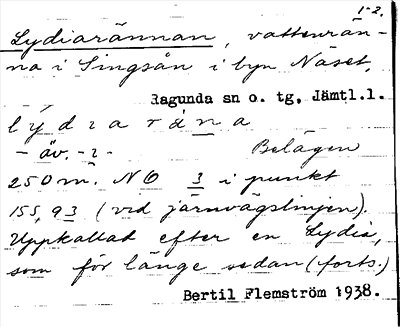 1-2.
Lydiarännan, vattenrän-
na i Singsån i byn Näset,
Ragunda sn o. tg, Jämtl.l.
lydiaräna
- äv. -2-
Belägen
250 m. NO 3 i punkt
155,93 (vid järnvägslinjen).
Uppkallat efter en Lydia,
som för länge sedan (forts.)
Bertil Flemström 1938.